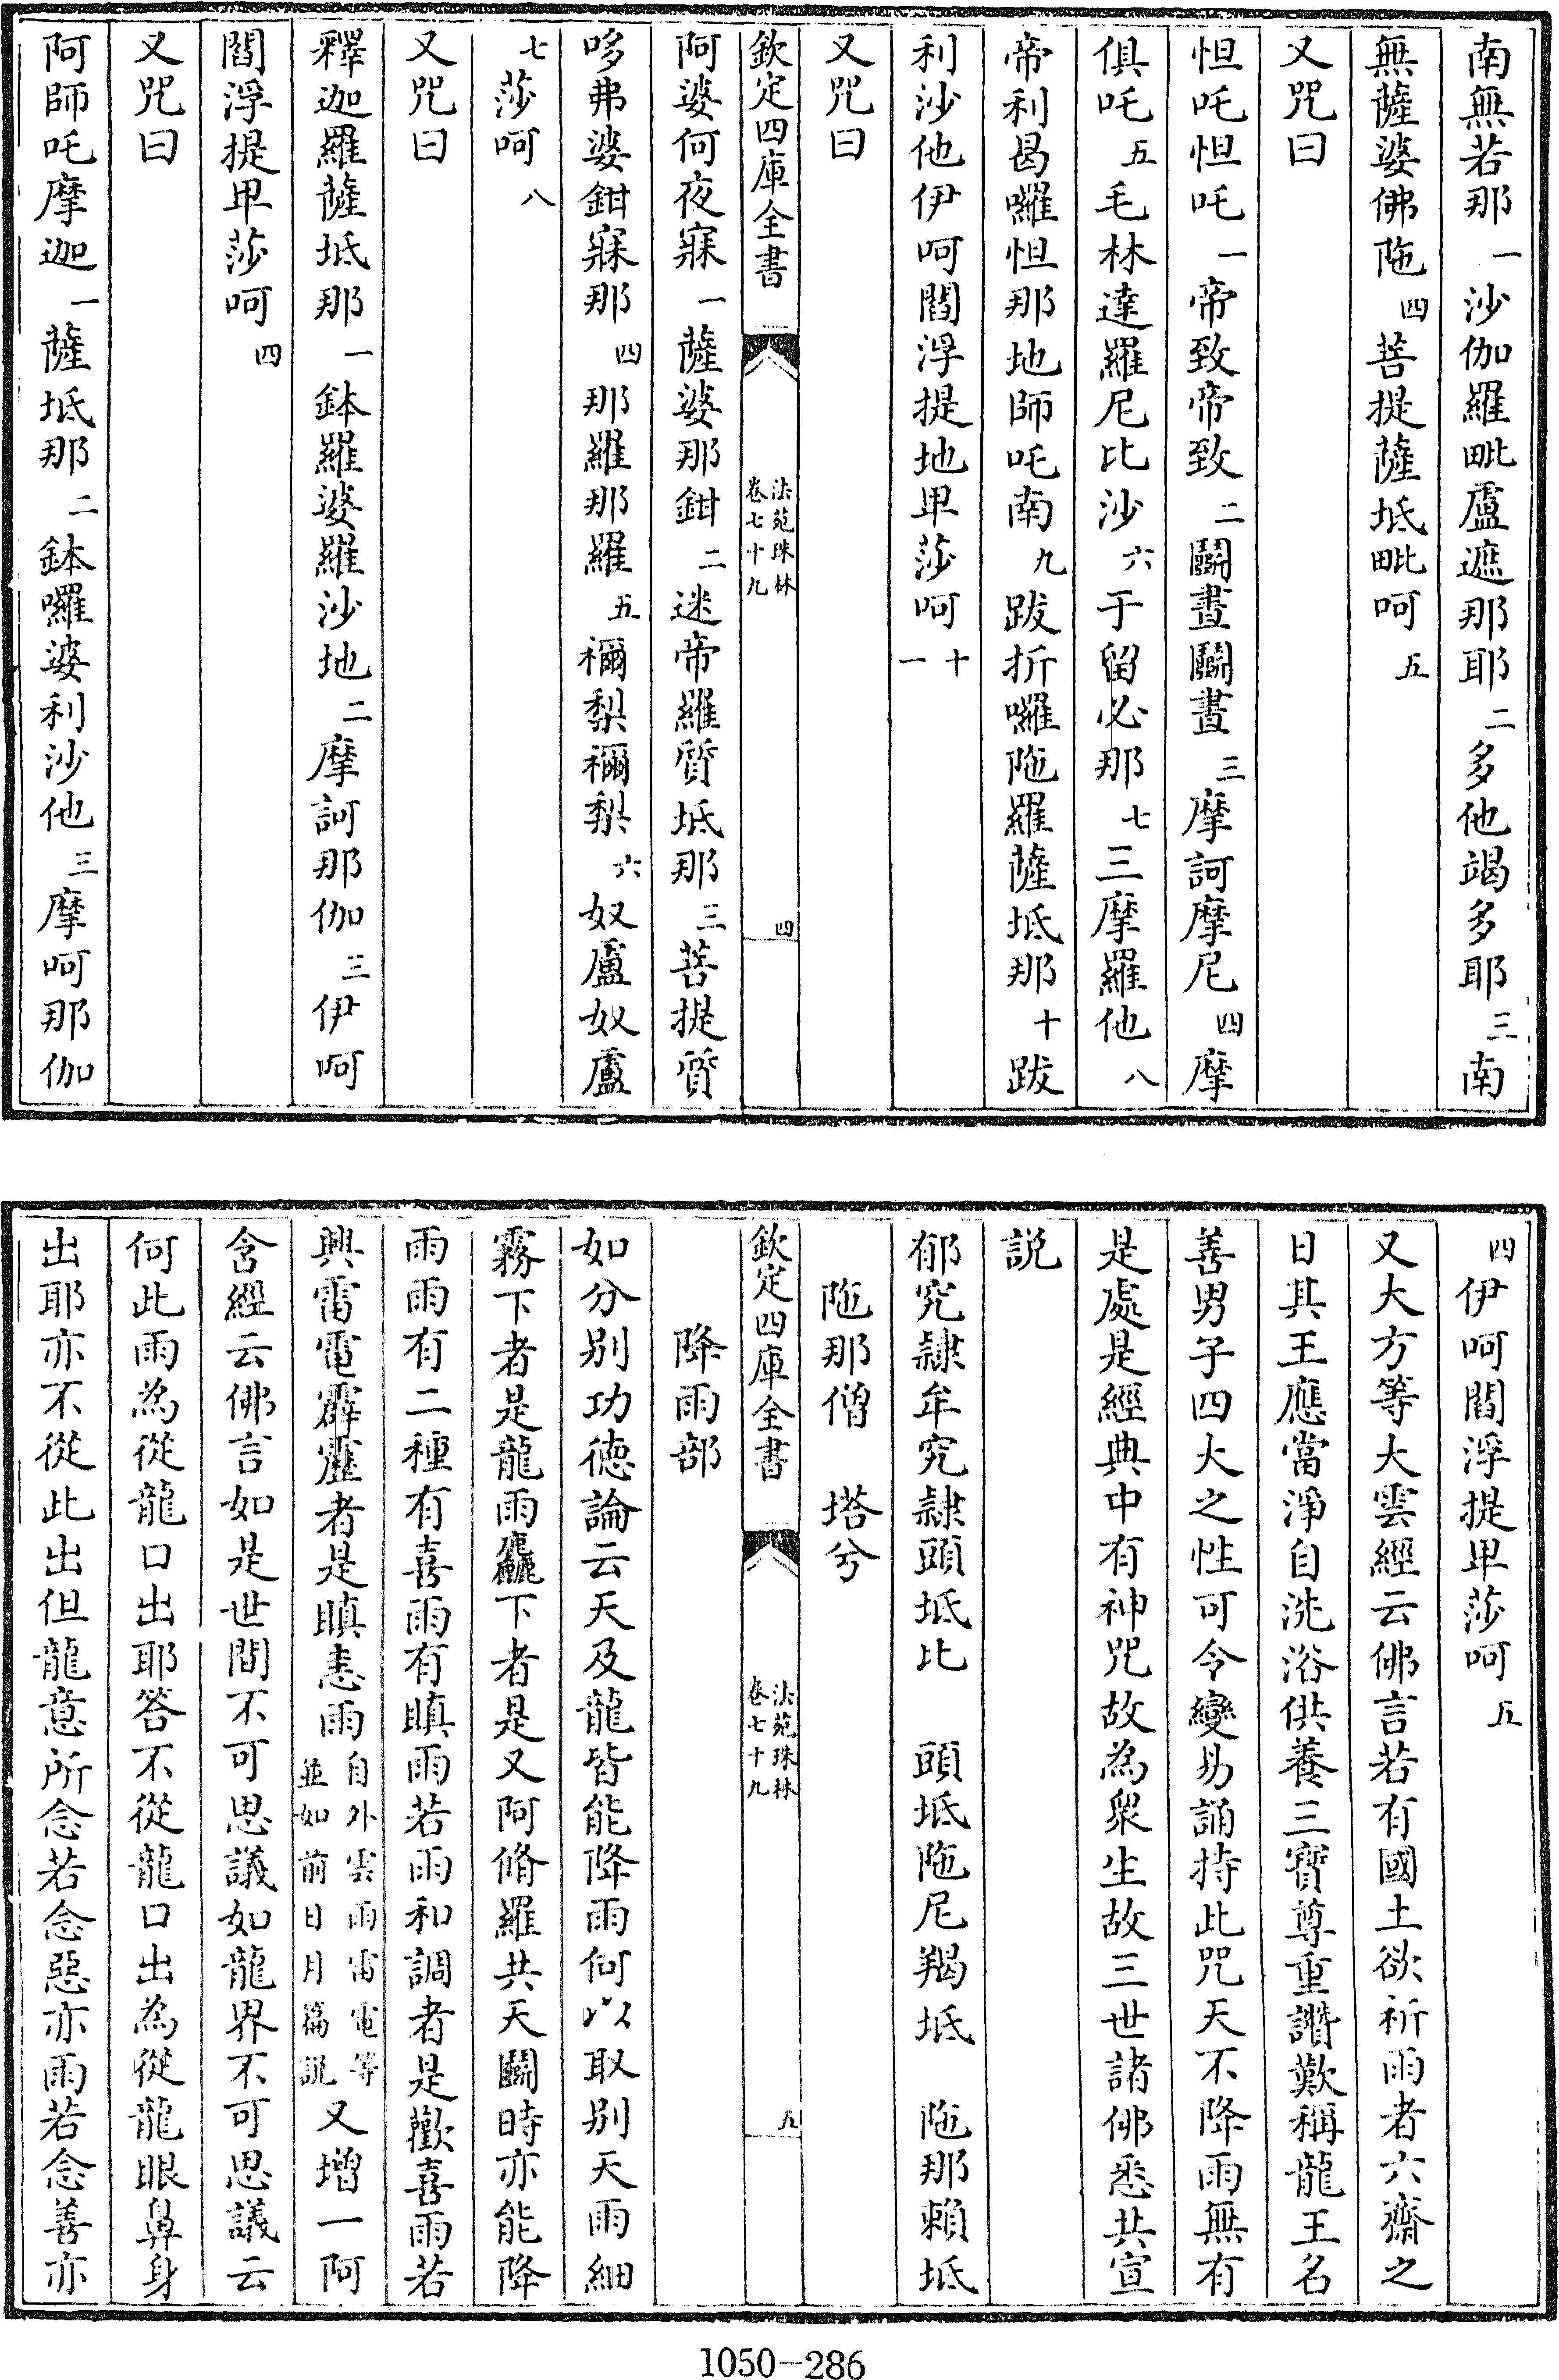 南無若那一沙伽羅毗盧遮那耶二多他竭多耶三南
無薩婆佛陁四菩提薩坻毗呵五
又咒曰
怛吒怛吒一帝致帝致二鬭晝鬭晝三摩訶摩尼四摩
俱吒五毛林達羅尼比沙六于留必那七三摩羅他八
帝利曷囉怛那地師吒南九跋折囉陁羅薩坻那十跋
利沙他伊呵閻浮提地卑莎呵十一
又咒曰
欽定四庫全書
法苑珠林
卷七十九
四
阿婆何夜寐一薩婆那鉗二迷帝羅質坻那三菩提質
哆弗婆鉗寐那四那羅那羅五禰梨禰梨六奴盧奴盧
七莎呵八
又咒曰
釋迦羅薩坻那一鉢羅婆羅沙地二摩訶那伽三伊呵
閻浮提卑莎呵四
又咒曰
阿師吒摩迦一薩坻那二鉢囉婆利沙他三摩呵那伽
四伊呵閻浮提卑莎呵五
又大方等大雲經云佛言若有國土欲祈雨者六齋之
日其王應當淨自洗浴供養三寶尊重讚歎稱龍王名
善男子四大之性可令變易誦持此咒天不降雨無有
是處是經典中有神咒故為衆生故三世諸佛悉共宣
說
郁究隷牟究隷頭坻比 頭坻陁尼羯坻 陁那賴坻
陁那僧 塔兮
欽定四庫全書
法苑珠林
卷七十九
五
降雨部
如分别功德論云天及龍皆能降雨何以取别天雨細
霧下者是龍雨麤下者是又阿脩羅共天鬭時亦能降
雨雨有二種有喜雨有瞋雨若雨和調者是歡喜雨若
興雷電霹靂者是瞋恚雨自外雲雨雷電等並如前日月篇説又增一阿
含經云佛言如是世間不可思議如龍界不可思議云
何此雨為從龍口出耶答不從龍口出為從龍眼鼻身
出耶亦不從此出但龍意所念若念惡亦雨若念善亦
1050-286